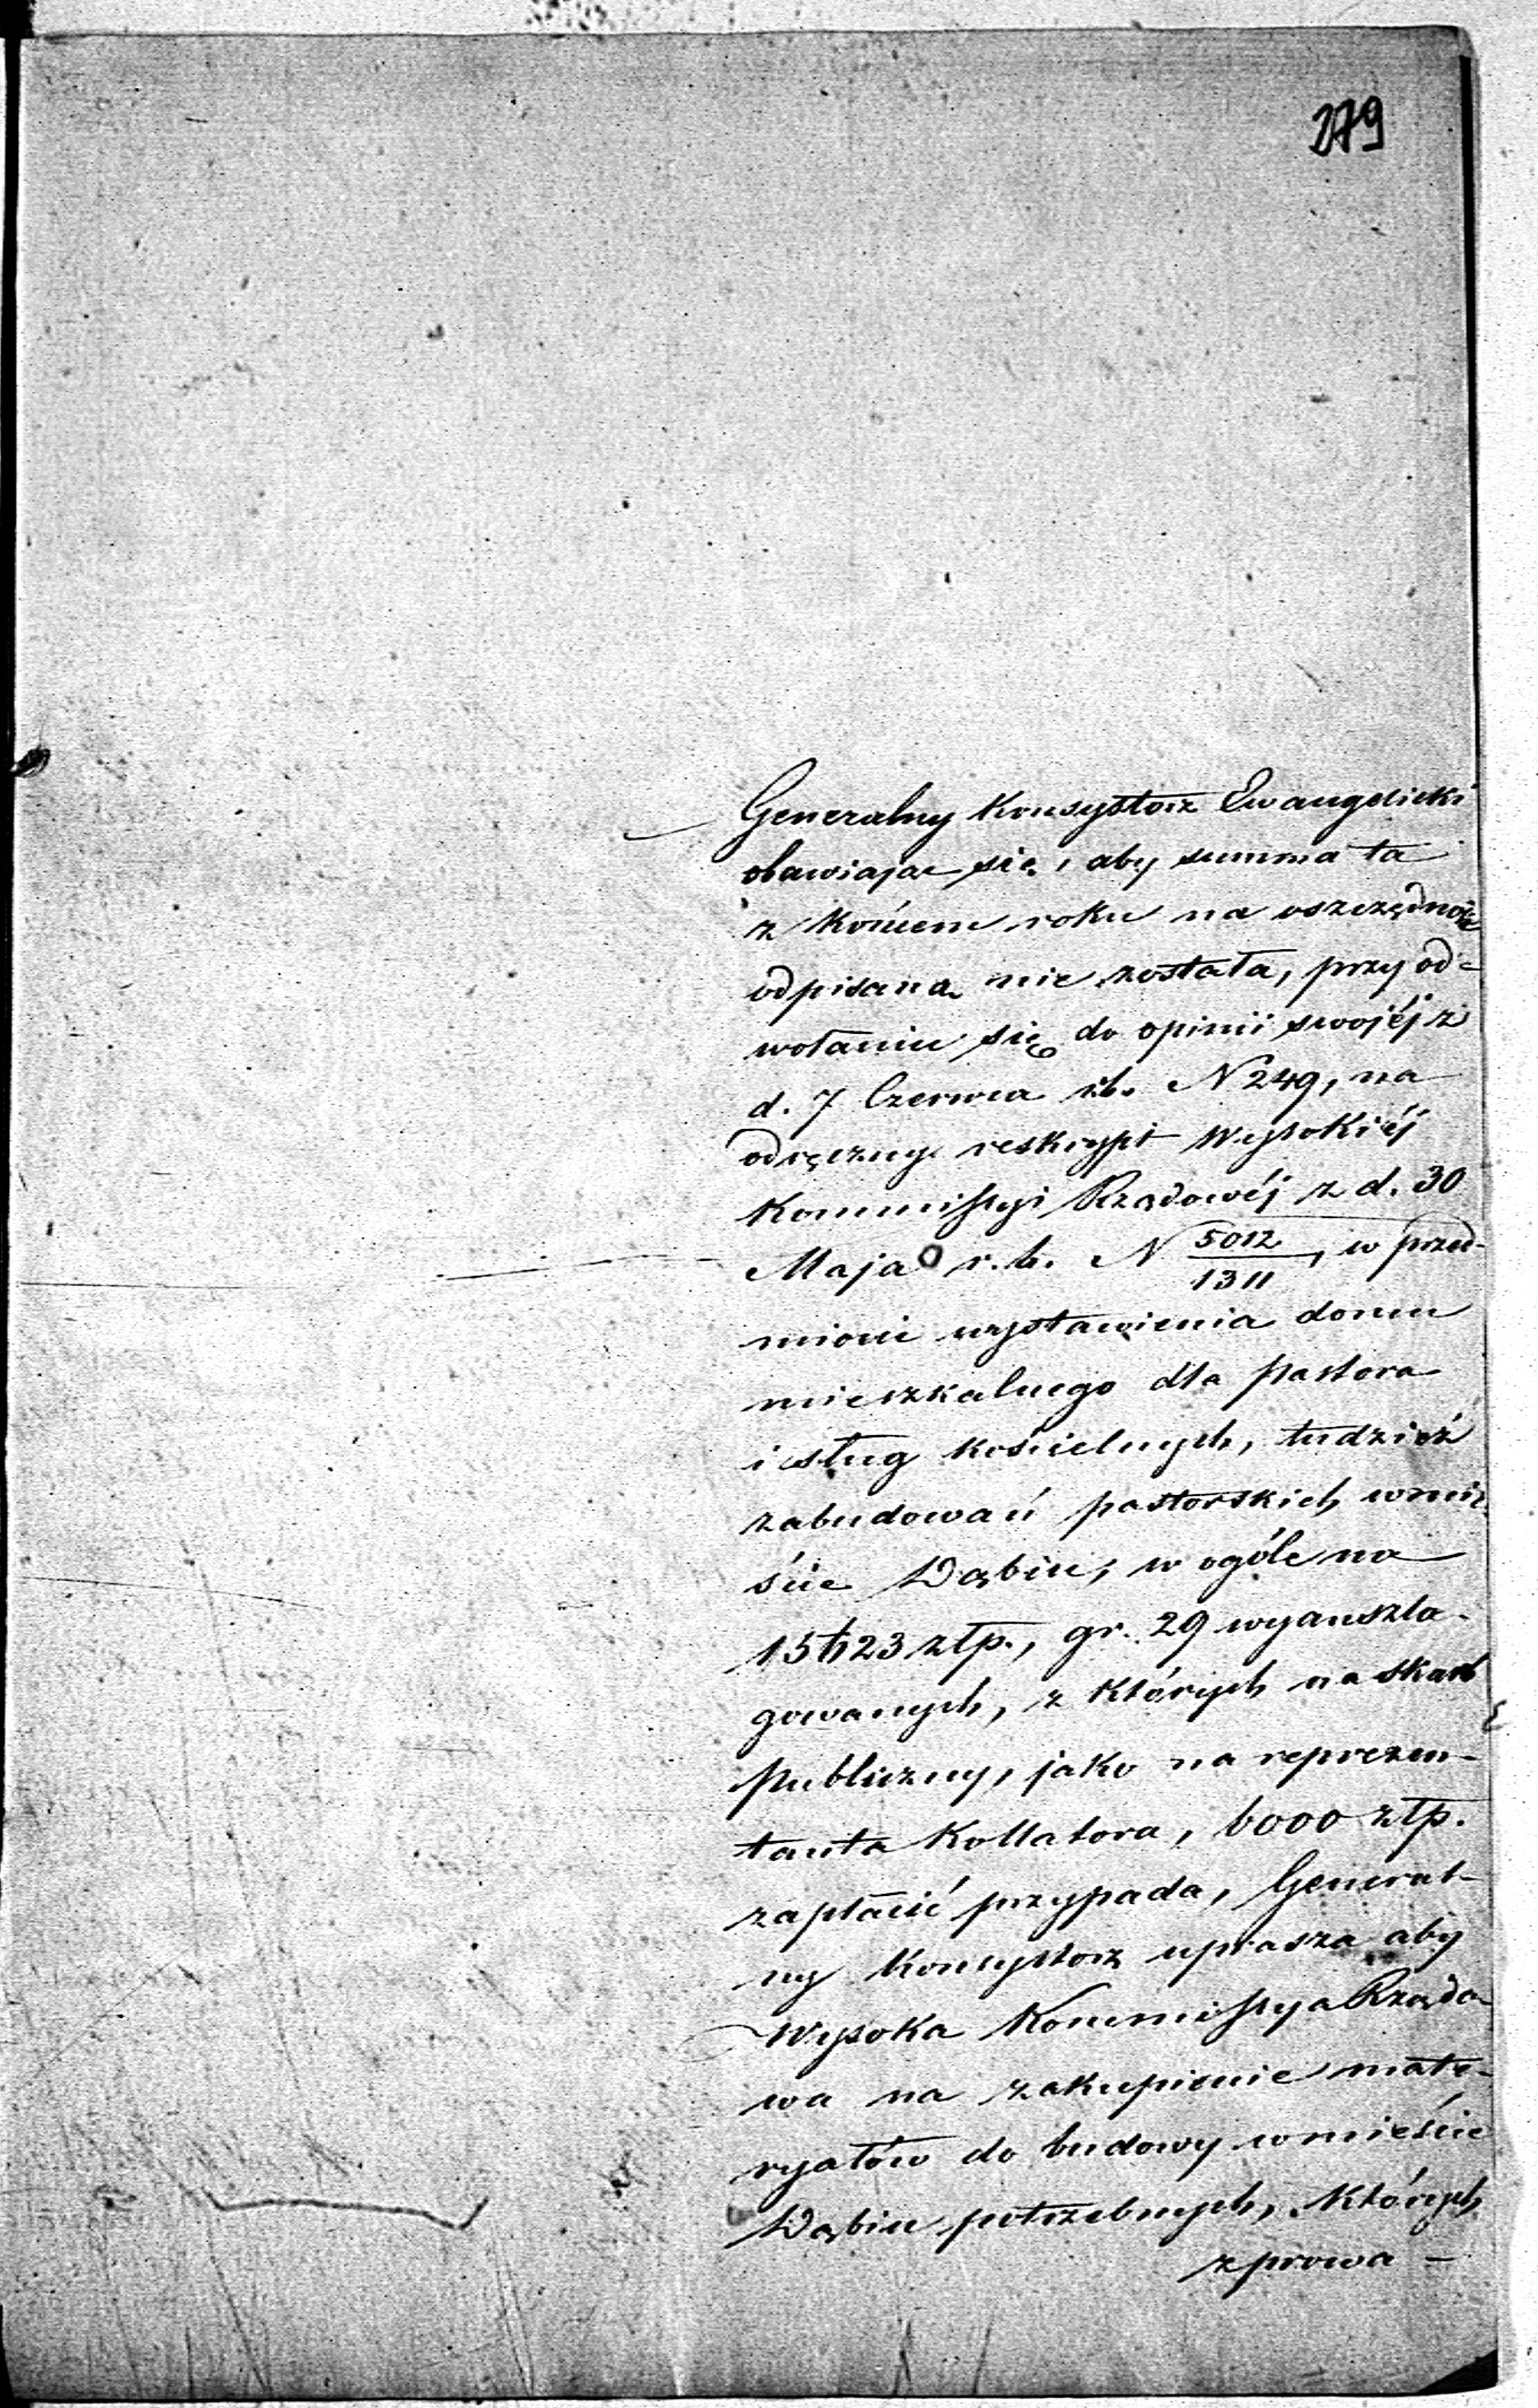 279
Generalny Konsystorz Ewangelicki
obawiając się, aby summa ta
z końcem roku na oszczędność
odpisaną nie została, przy od-
wołaniu się do opinii swojéj z
d. 7 Czerwca r.b. N 249, na
odręczny reskrypt Wysokiéj
Kommissyi Rządowéj z d. 30
Maja r.b. N 5012/1311, w przed-
miocie wystawienia domu
mieszkalnego dla pastora
i sług kościelnych, tudzież
zabudowań pastorskich w mie-
ście Dąbiu, w ogóle na
15623 złp., gr. 29 wyanszla-
gowanych, z których na skarb
publiczny, jako na reprezen-
tanta Kollatora, 6000 złp.
zapłacić przypada, General-
ny Konsystorz uprasza aby
Wysoka Kommissya Rządo-
wa na zakupienie mate-
ryałów do budowy w mieście
Dąbiu potrzebnych, których
zprowa-